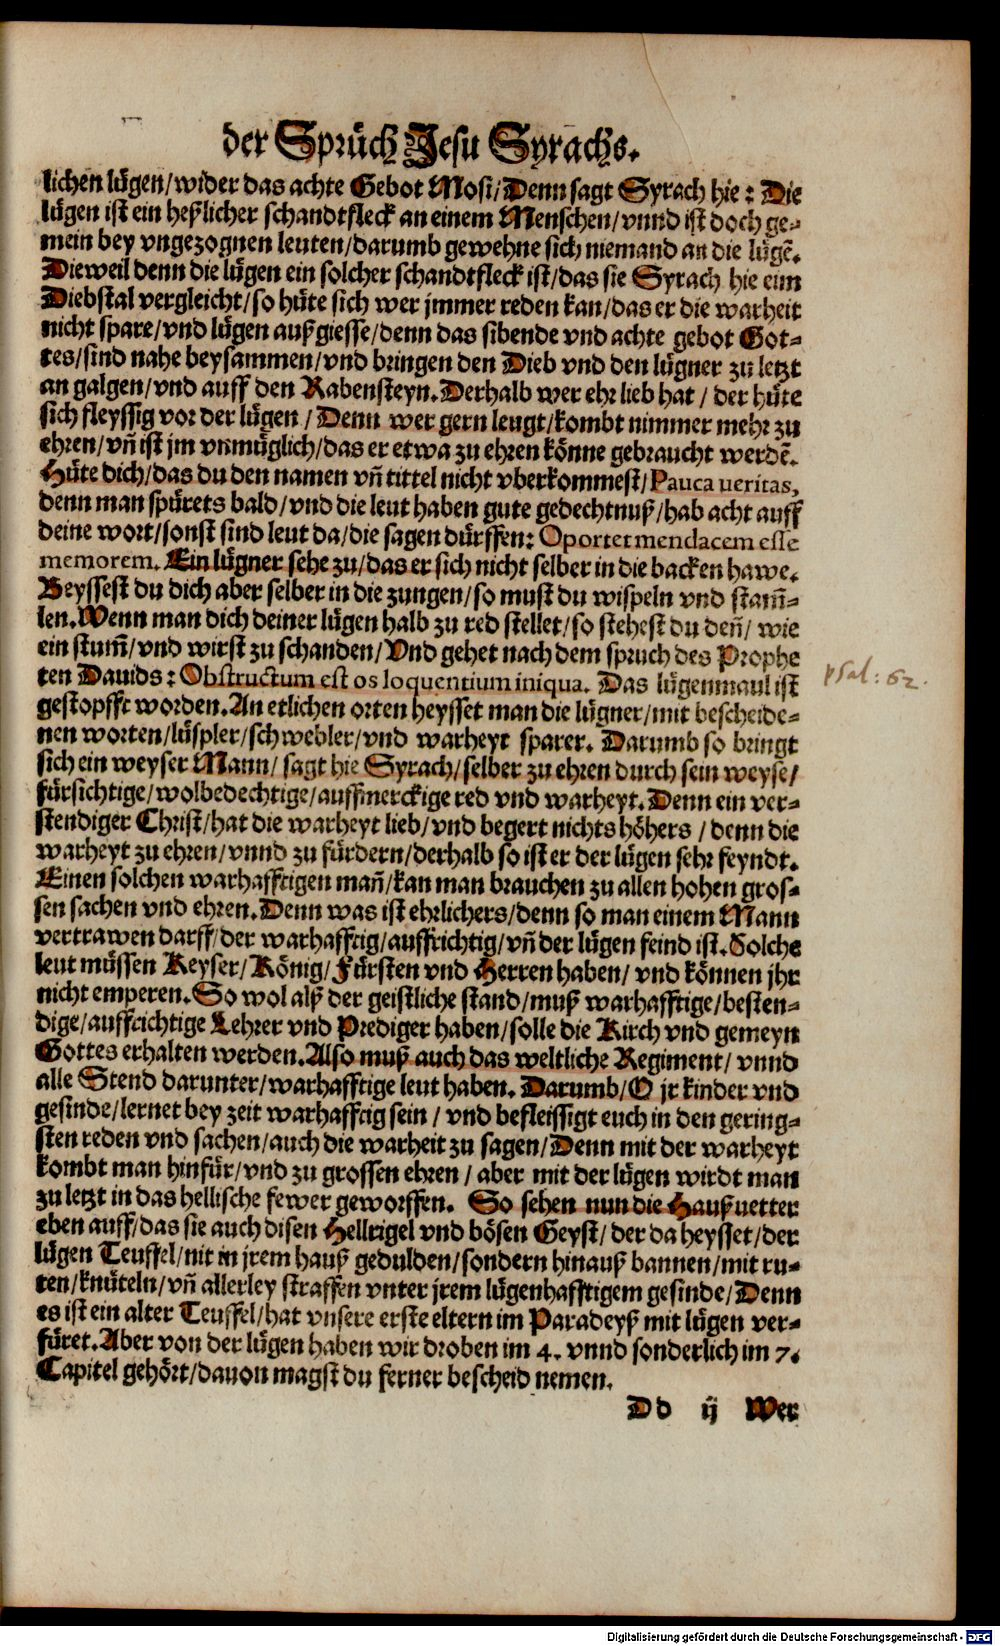 der Sprüch Jesu Syrachs.
lichen lügen/wider das achte Gebot Mosi/Denn sagt Syrach hie: Die
lügen ist ein heßlicher schandtfleck an einem Menschen/vnnd ist doch ge-
mein bey vngezognen leuten/darumb gewehne sich niemand an die lügẽ.
Dieweil denn die lügen ein solcher schandtfleck ist/das sie Syrach hie eim
Diebstal vergleicht/so hüte sich wer jmmer reden kan/das er die warheit
nicht spare/vnd lügen außgiesse/denn das sibende vnd achte gebot Got-
tes/sind nahe beysammen/vnd bringen den Dieb vnd den lügner zu letzt
an galgen/vnd auff den Rabensteyn. Derhalb wer ehr lieb hat / der hüte
sich fleyssig vor der lügen / Denn wer gern leugt/kombt nimmer mehr zu
ehren/vñ ist jm vnmüglich/das er etwa zu ehren könne gebraucht werdẽ.
Hüte dich/das du den namen vñ tittel nicht vberkommest/Pauca ueritas,
denn man spürets bald/vnd die leut haben gute gedechtnuß/hab acht auff
deine wort/sonst sind leut da/die sagen dürffen: Oportet mendacem esse
memorem. Ein lügner sehe zu/das er sich nicht selber in die backen hawe.
Beyssest du dich aber selber in die zungen/so must du wispeln vnd stam̃-
len. Wenn man dich deiner lügen halb zu red stellet/so stehest du deñ/ wie
ein stum̃/vnd wirst zu schanden/Vnd gehet nach dem spruch des Prophe
ten Dauids: Obstructum est os loquentium iniqua. Das lügenmaul ist
psal: 62.
gestopfft worden. An etlichen orten heysset man die lügner/mit bescheide-
nen worten/lüspler/schwebler/vnd warheyt sparer. Darumb so bringt
sich ein weyser Mann/ sagt hie Syrach/selber zu ehren durch sein weyse/
fürsichtige/wolbedechtige/auffmerckige red vnd warheyt. Denn ein ver-
stendiger Christ/hat die warheyt lieb/vnd begert nichts höhers / denn die
warheyt zu ehren/vnnd zu fürdern/derhalb so ist er der lügen sehr feyndt.
Einen solchen warhafftigen mañ/kan man brauchen zu allen hohen gros-
sen sachen vnd ehren. Denn was ist ehrlichers/denn so man einem Mann
vertrawen darff/der warhafftig/auffrichtig/vñ der lügen feind ist. Solche
leut müssen Keyser/König/Fürsten vnd Herren haben/ vnd können jhr
nicht emperen. So wol alß der geistliche stand/muß warhafftige/besten-
dige/auffrichtige Lehrer vnd Prediger haben/solle die Kirch vnd gemeyn
Gottes erhalten werden. Also muß auch das weltliche Regiment/ vnnd
alle Stend darunter/warhafftige leut haben. Darumb/O jr kinder vnd
gesinde/lernet bey zeit warhafftig sein / vnd befleissigt euch in den gering-
sten reden vnd sachen/auch die warheit zu sagen/Denn mit der warheyt
kombt man hinfür/vnd zu grossen ehren / aber mit der lügen wirdt man
zu letzt in das hellische fewer geworffen. So sehen nun die Haußuetter
eben auff/das sie auch disen Hellrigel vnd bösen Geyst/ der da heysset/der
lügen Teuffel/nit in jrem hauß gedulden/sondern hinauß bannen/mit ru-
ten/knüteln/vñ allerley straffen vnter jrem lügenhafftigem gesinde/Denn
es ist ein alter Teuffel/hat vnsere erste eltern im Paradeyß mit lügen ver-
füret. Aber von der lügen haben wir droben im 4. vnnd sonderlich im 7.
Capitel gehört/dauon magst du ferner bescheid nemen.
Dd ij Wer
Digitalisierung gefördert durch die Deutsche Forschungsgemeinschaft - DFG